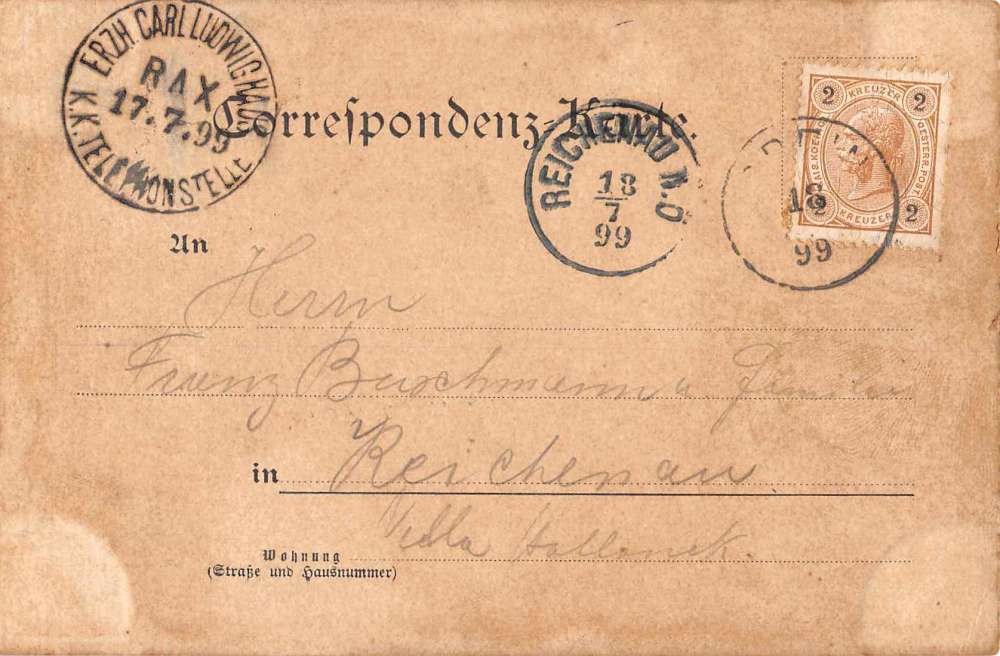 ERZH. CARL LUDWIG HAUS
RAX
17.7.99
K.K. TELEPHONSTELLE
Correspondenz-Karte.
REICHENAU N.Ö
18
7
99
18
99
2 KREUZER 2
KAIS. KOENIGL. OESTERR. POST.
2 KREUZER 2
An
Herrn
Franz Buschmann u. Familie
in Reichenau
Villa
Wohnung
(Straße und Hausnummer)